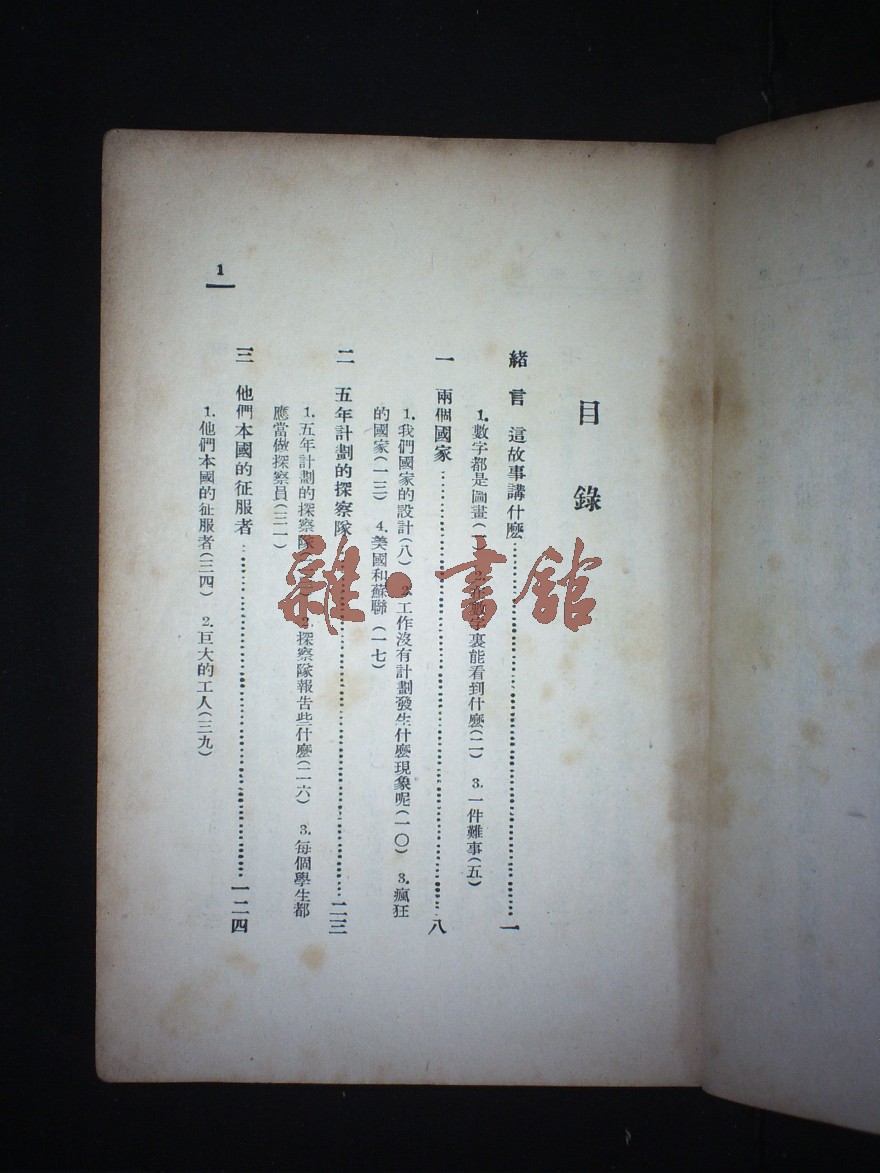 目錄
緒言 這故事講什麼……一
1.數字都是圖畫(一) 數字裏能看到什麼(二) 3.一件難事(五)
一 兩個國家……八
1.我們國家的設計(八) 2.工作沒有計劃發生什麼現象呢(一〇) 3.瘋狂
的國家(一三) 4.美國和蘇聯(一七)
二 五年計劃的探察隊……二三
1.五年計劃的探察隊 探察隊報告些什麼(二六) 3.每個學生都
應當做探察員(三一)
三 他們本國的征服者……一二四
1.他們本國的征服者(三四) 2.巨大的工人(三九)
1
雜·書館